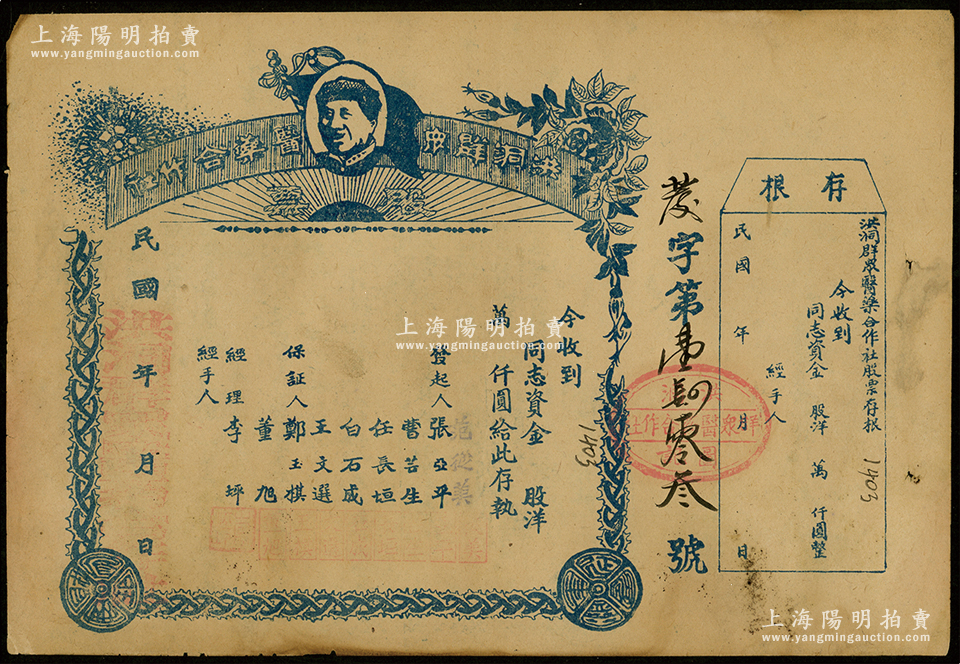 上海陽明拍賣
www.yangmingauction.com
洪洞群眾醫藥合作社
股票
存根
洪洞群眾醫藥合作社股票存根
今收到
同志資金 股洋 萬 仟圓整
經手人
民國 年 月 日
1403
發字第壹肆零叁號
1403
今收到
同志資金 股洋
萬 仟圓給此存執
發起人 張亞平
范從善
曹苦生
任長垣
白石成
王文選
保証人 鄭玉棋
董旭
經理 李坪
經手人
民國 年 月 日
上海陽明拍賣
www.yangmingauction.com
上海陽明拍賣
www.yangmingauction.com